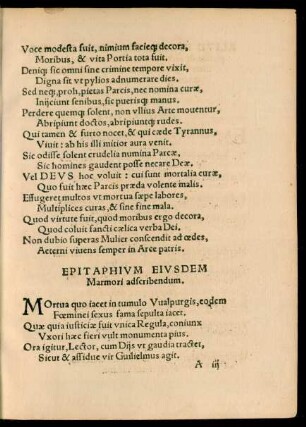 Voce modesta fuit, nimium facieq; decora,
Moribus, & vita Portia tota fuit.
Deniq; sic omni sine crimine tempore vixit,
Digna sit vt pylios adnumerare dies.
Sed neq;, proh, pietas Parcis, nec nomina curæ,
Inijciunt senibus, sic puerisq; manus.
Perdere quemq; solent, non vllius Arte mouentur,
Abripiunt doctos, abripiuntq; rudes.
Qui tamen & furto nocet, & qui cæde Tyrannus,
Viuit: ab his illi mitior aura venit.
Sic odisse solent crudelia numina Parcæ,
Sic homines gaudent posse necare Deæ.
Vel DEVS hoc voluit: cui sunt mortalia curæ,
Quo fuit hæc Parcis præda volente malis.
Effugeret multos vt mortua sæpe labores,
Multiplices curas, & sine fine mala.
Quod virtute fuit, quod moribus ergo decora,
Quod coluit sancti cælica verba Dei.
Non dubio superas Mulier conscendit ad ædes,
Aeterni viuens semper in Arce patris.
EPITAPHIVM EIVSDEM
Marmori adscribendum.
Mortua quo iacet in tumulo Vualpurgis, eodem
Fœminei sexus fama sepulta iacet.
Quæ quia iusticiæ fuit vnica Regula, coniunx
Vxori hæc fieri vult monumenta pius.
Ora igitur, Lector, cum Dijs vt gaudia tractet,
Sicut & assidue vir Guilielmus agit.
A iij